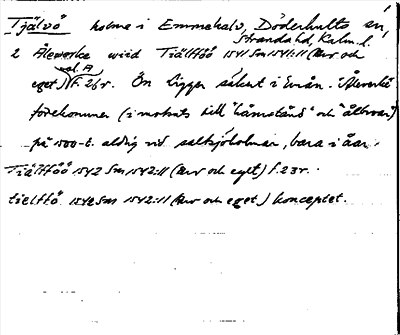 Tjälvö holme i Emmekalv, Döderhults sn,
Stranda hd Kalm. l.
2 Ålewerke wiid Tiälfföö 1541 Sm 1541:11 (Arv och
vol A
eget) f. 26r. Ön ligger säkert i Emån. "Ålverke
förekommer (i motsats till "håmstånd" och
på 1500-t. aldrig vid saltsjöholmar, bara i åar
Tiälfföö 1542 Sm 1542:11 (Arv och eget) f. 23r.
tielffö 1542 Sm 1542:11 (Arv och eget) konceptet.